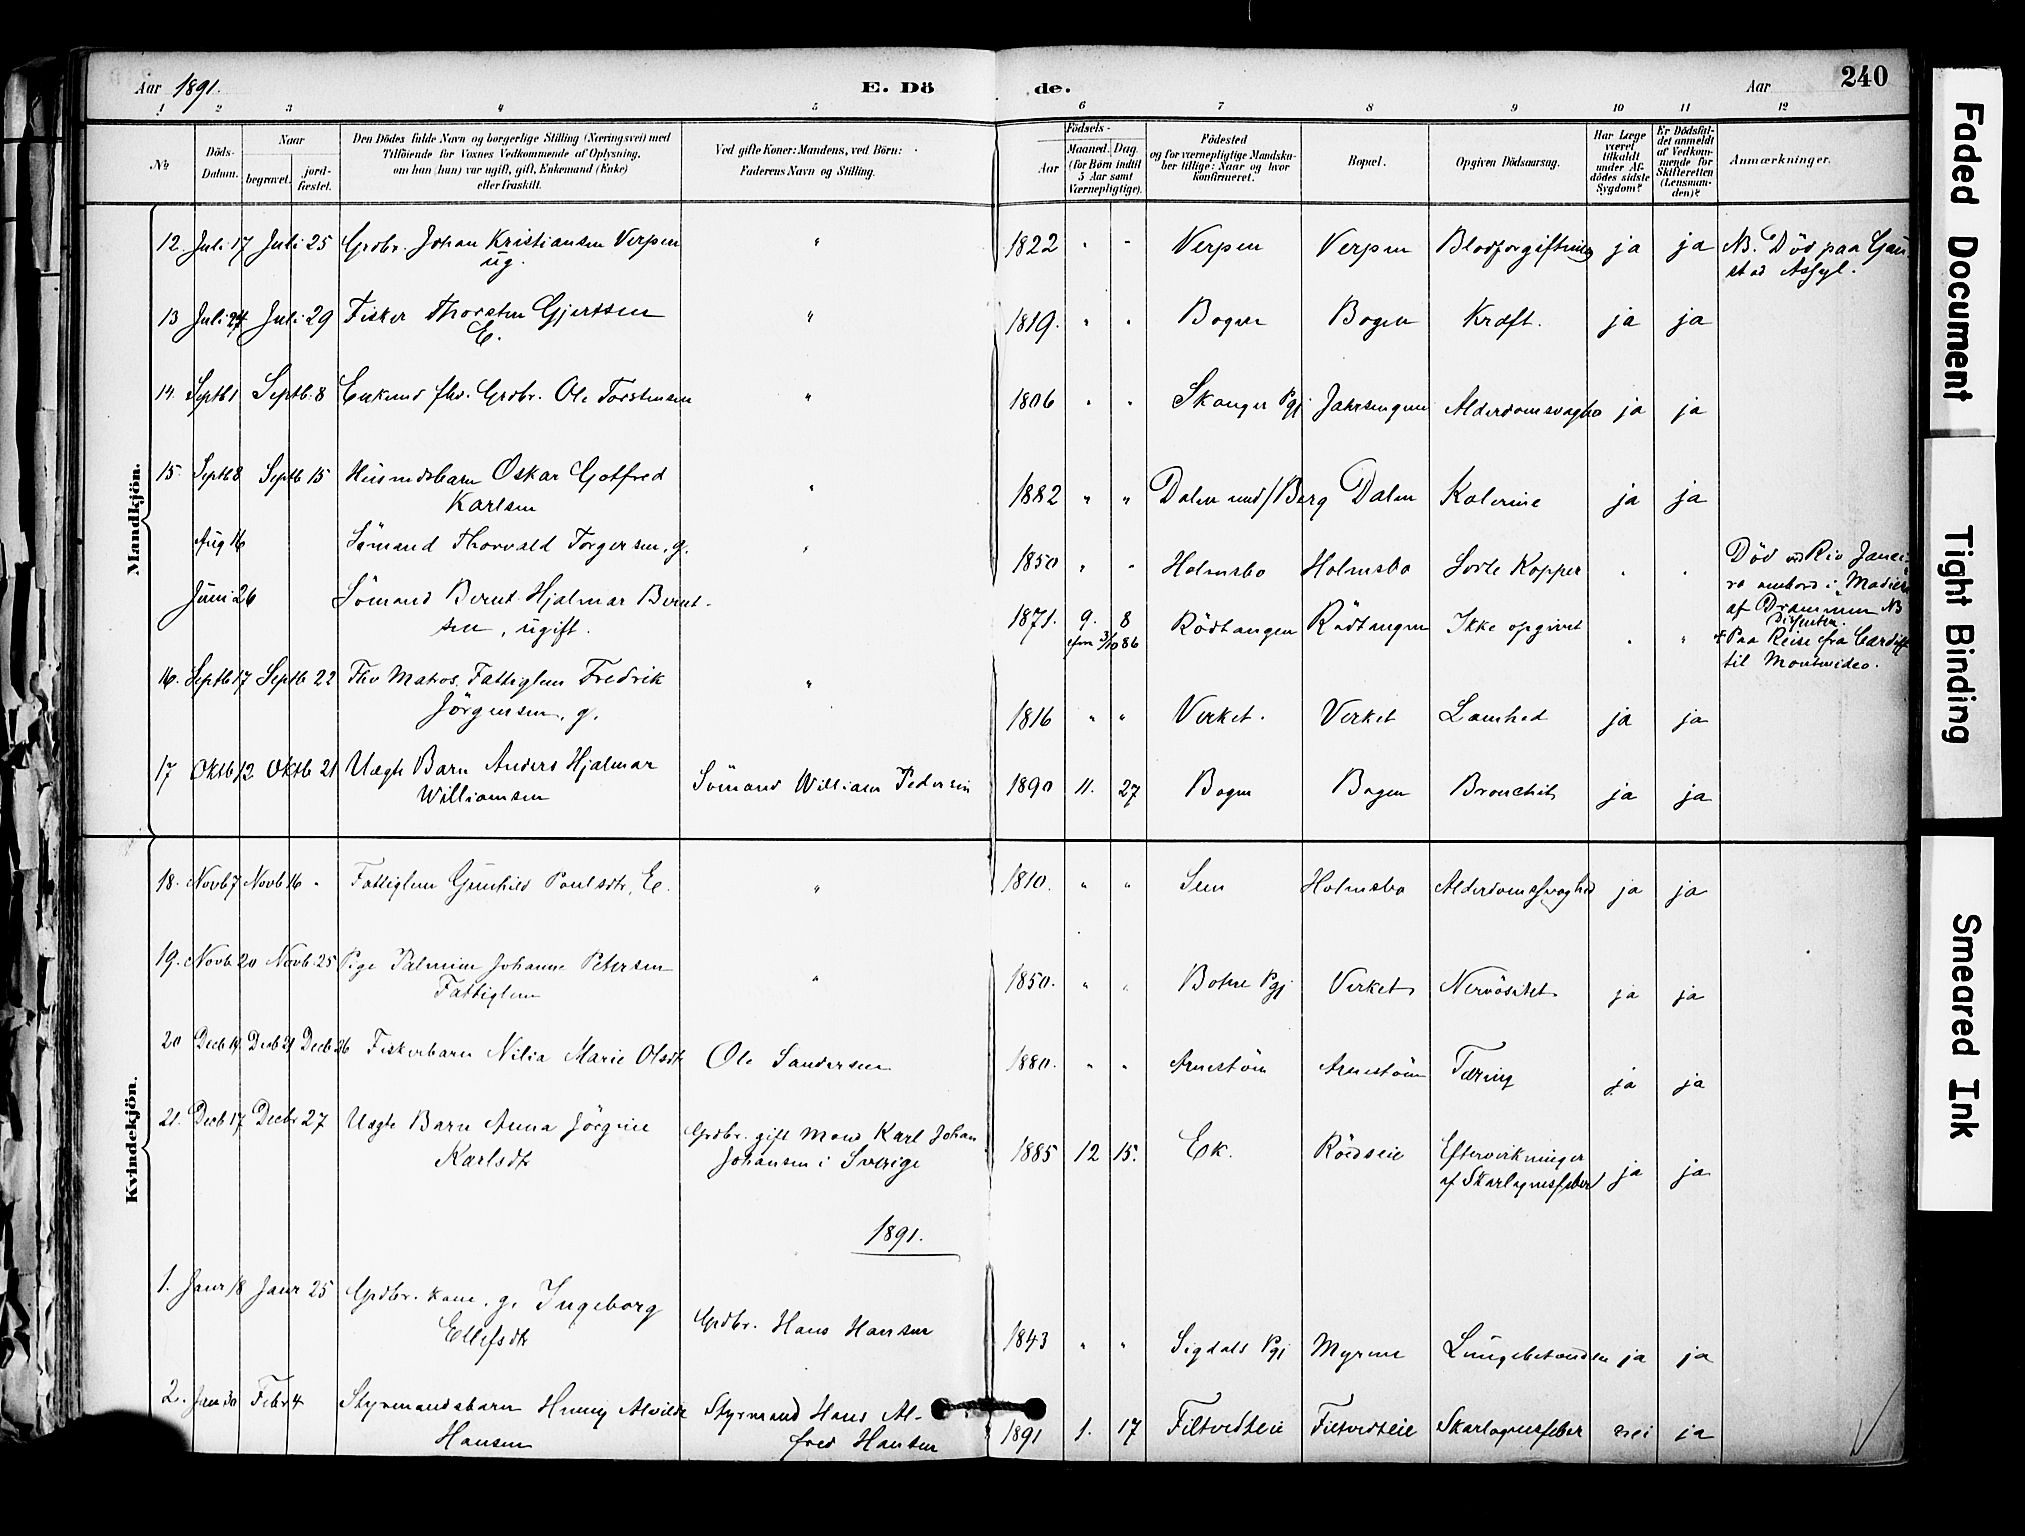 Aar 1891. E. Döde. Aar 240
1 2 3 4 5 6 7 8 9 10 11 12
No
Döds-Datum.
Naar
begravet. jord-fæstet.
Den Dödes fulde Navn og borgerlige Stilling (Næringsvei) med
Tilföiende for Voxnes Vedkommende af Oplysning,
om han (hun) var ugift, gift, Enkemand (Enke)
eller fraskilt.
Ved gifte Koner: Mandens, ved Börn:
Faderens Navn og Stilling.
Födsels-
Aar
Maaned. Dag.
(for Börn indtil
5 Aar samt
Værnepligtige).
Födested
og for værnepligtige Mandskaber tillige: Naar og hvor
konfirmeret.
Bopæl.
Opgiven Dödsaarsag.
Har Læge
været
tilkaldt
under Afdödes sidste
Sygdom?
Er Dödsfaldet anmeldt
af Vedkommende for
Skifteretten
(Lensmanden)?
Anmærkninger.
Mandkjön.
12. Juli 17 Juli 25 Grdbr. Johan Kristiansen Verpen " 1822 " " Verpen Verpen Blodforgiftning ja ja NB. Död paa Gau-
ug. stad Asyl.
13 Juli 24 Juli 29 Fisker Thorsten Gjertsen " 1819. " " Bogen Bogen Kræft. ja ja
E.
14. Septb 1 Septb. 8 Enkemd fhv. Grdbr. Ole Torstensen " 1806 " " Skauger Pgj Jahrsengen Alderdomsvaghd ja ja
15. Septb 8 Septb 15 Husmdsbarn Oskar Gotfred " 1882 " " Dalen und/Berg Dalen Kolerine ja ja
Karlsen
Aug 16 Sömand Thorvald Torgersen, g. " 1850 " " Holmsbo Holmsbo Sorte Kopper " " Död ved Rio Janei-
ro ombord i
af Drammen NB
Dissenter.
Juni 26 Sömand Bernt Hjalmar Bernt- 1871. 9. 8 Rödtangen Rödtangen Ikke opgivet " " Paa Reise fra Cardiff
sen, ugift. 3/10 86 til Montevideo.
16. Septb 17 Septb 22 Fhv Matros. Fattiglem Fredrik " 1816 " " Verket. Verket Lamhed ja ja
Jörgensen, g.
17 Oktb 12 Oktb 21 Uægte Barn Anders Hjalmar Sömand William Pedersen 1890 11. 27 Bogen Bogen Bronchit ja ja
Williamsen
Kvindekjön.
18. Novb 7 Novb 16 " Fattiglem Gunhild Poulsdtr, E. " 1810. " " Sem Holmsbo Alderdomssvaghed ja ja
19. Novb. 20 Novb. 25 Pige Palmine Johanne Petersen " 1850. " " Botne Pgj Verket Nervösitet ja ja
Fattiglem
20 Decb 19 Decb 21 Decb 26 Fiskerbarn Nilia Marie Olsdtr Ole Sandersen 1880. " " Arnestöen Arnestöen Tæring ja ja
21. Decb 17 Decbr 27 Uægte Barn Anna Jörgine Grdbr. gift Mand Karl Johan 1885 12 15. Ek. Rödseie Eftervirkninger ja ja
Karlsdtr Johansen i Sverige af Skarlagensfeber
1891.
1. Januar 18 Januar 25 Grdbr. kone, g. Ingeborg Grdbr. Hans Hansen 1843 " " Sigdals Pgj Myrene Lungebetændelse ja ja
Ellefsdtr
2. Jan 30 Febr 4 Styrmandsbarn Henny Alvilde Styrmand Hans Al- 1891 1. 17 Filtvedteie Filtvedteie Skarlagensfeber nei ja
Hansen fred Hansen
Faded Document
Tight Binding
Smeared Ink